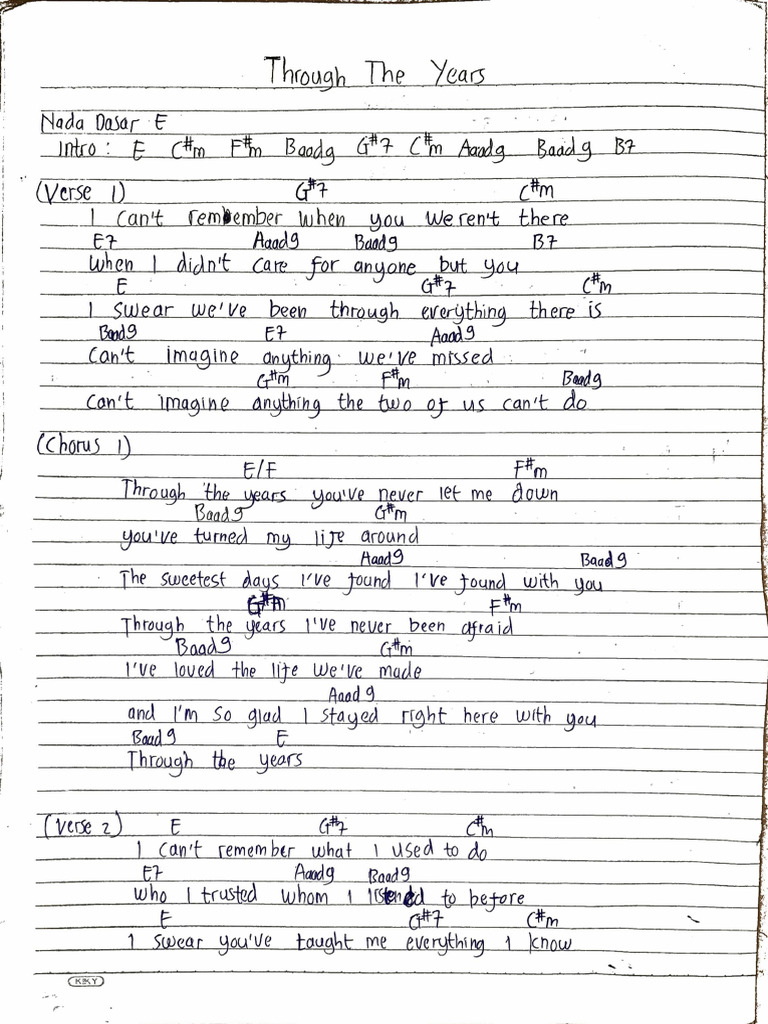 Through The Years
Nada Dasar E
Intro : E C#m F#m Baad9 G#7 C#m Aaad9 Baad9 B7
(Verse 1) G#7 C#m
I can't remember when you weren't there
E7 Aaad9 Baad9 B7
When I didn't care for anyone but you
E G#7 C#m
I swear we've been through everything there is
Baad9 E7 Aaad9
Can't imagine anything we've missed
G#m F#m Baad9
Can't imagine anything the two of us can't do
(Chorus 1)
E/F F#m
Through the years you've never let me down
Baad9 G#m
you've turned my life around
Aaad9 Baad9
The sweetest days I've found I've found with you
G#m F#m
Through the years I've never been afraid
Baad9 G#m
I've loved the life we've made
Aaad9
and I'm so glad I stayed right here with you
Baad9 E
Through the years
(Verse 2) E G#7 C#m
I can't remember what I used to do
E7 Aaad9 Baad9
who I trusted whom I listened to before
E G#7 C#m
I swear you've taught me everything I know
KIKY